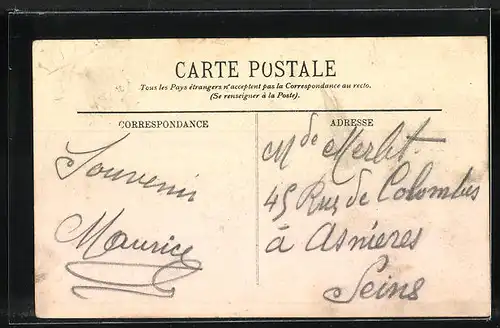 CARTE POSTALE
Tous les Pays étrangers n'acceptent pas la Correspondance au recto.
(Se renseigner à la Poste).
CORRESPONDANCE
ADRESSE
Souvenir
Maurice
Mde Merlat
45 Rue de Colombes
à Asnieres
Seine